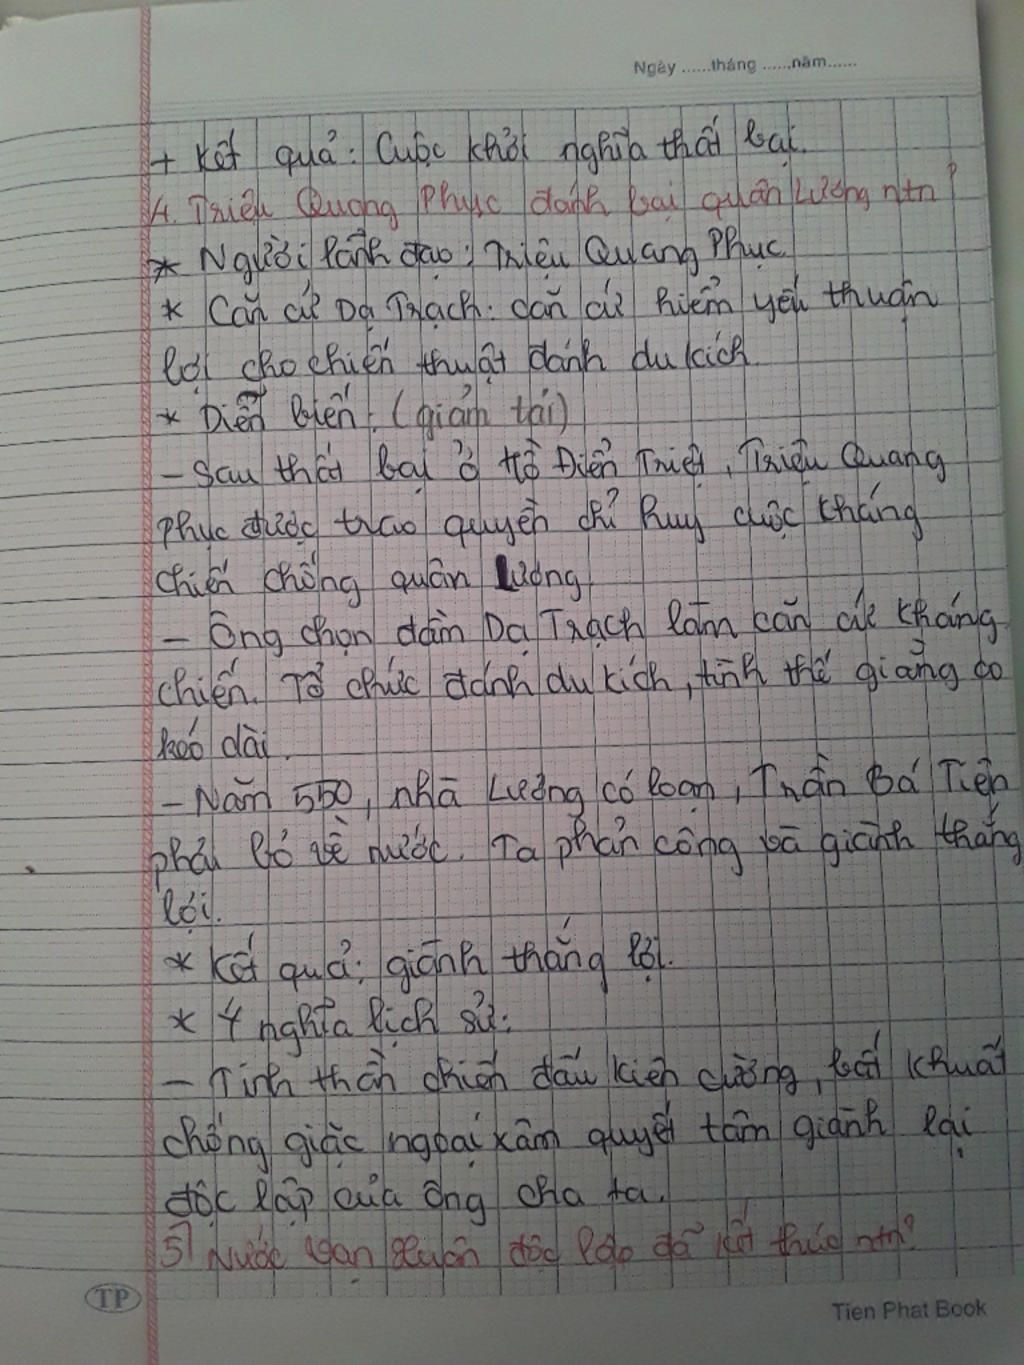 Ngày ......tháng ......năm......
+ Kết quả: Cuộc khởi nghĩa thất bại.
4. Triệu Quang Phục đánh bại quân Lương ntn?
* Người lãnh đạo: Triệu Quang Phục
* Căn cứ Dạ Trạch: căn cứ hiểm yếu thuận
lợi cho chiến thuật đánh du kích
* Diễn biến: (giảm tải)
- Sau thất bại ở hồ Điển Triệt, Triệu Quang
Phục được trao quyền chỉ huy cuộc kháng
chiến chống quân Lương
- Ông chọn đầm Dạ Trạch làm căn cứ kháng
chiến. Tổ chức đánh du kích, tình thế giằng co
kéo dài.
- Năm 550, nhà Lương có loạn, Trần Bá Tiên
phải bỏ về nước. Ta phản công và giành thắng
lợi.
* Kết quả: giành thắng lợi.
* Ý nghĩa lịch sử:
- Tinh thần chiến đấu kiên cường, bất khuất
chống giặc ngoại xâm quyết tâm giành lại
độc lập của ông cha ta.
5) Nước Vạn Xuân độc lập đã kết thúc ntn?
TP
Tien Phat Book